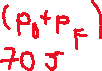 (p₀+p_F)
70 J